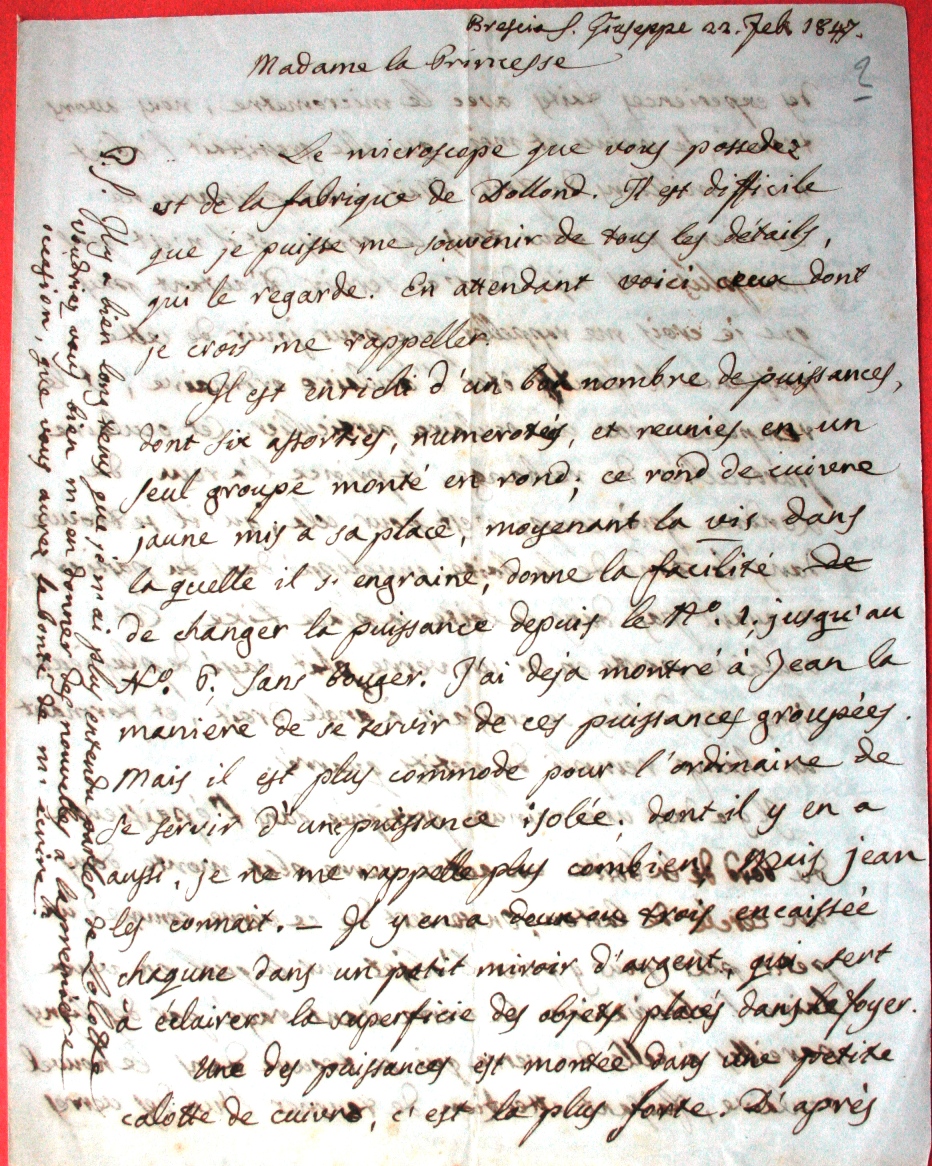 Brescia S. Giuseppe 22. Feb. 1847.
2
Madame la Princesse
Le microscope que vous possedez
est de la fabrique de Dollond. Il est difficile
que je puisse me souvenir de tous les détails,
qui le regarde. En attendant voici ceux dont
je crois me rappeller.
Il est enrichi d'un bon nombre de puissances,
dont six assorties, numerotés, et reunies en un
seul groupe monté en rond; ce rond de cuivre
jaune mis à sa place, moyenant la vis dans
la quelle il s'engraine, donne la facilité de
de changer la puissance depuis le No. 1. jusqu'au
No. 6. sans bouger. J'ai deja montré à Jean la
manière de se servir de ces puissances groupées.
Mais il est plus commode pour l'ordinaire de
se servir d'une puissance isolée, dont il y en a
aussi, je ne me rappelle plus combien, mais jean
les connait. — Il y en a deux ou trois encaissée
chaqune dans un petit miroir d'argent, qui sert
à éclairer la superficie des objets placés dans le foyer.
Une des puissances est montée dans une petite
calotte de cuivre, c'est la plus forte. D'après
P.S. Il y a bien long tems que je n'ai plus entendu parler de Lolotte
Voudriez vous bien m'en donner de nouvelles à la premiere
occasion, que vous aurez la bonté de m'ecrire.